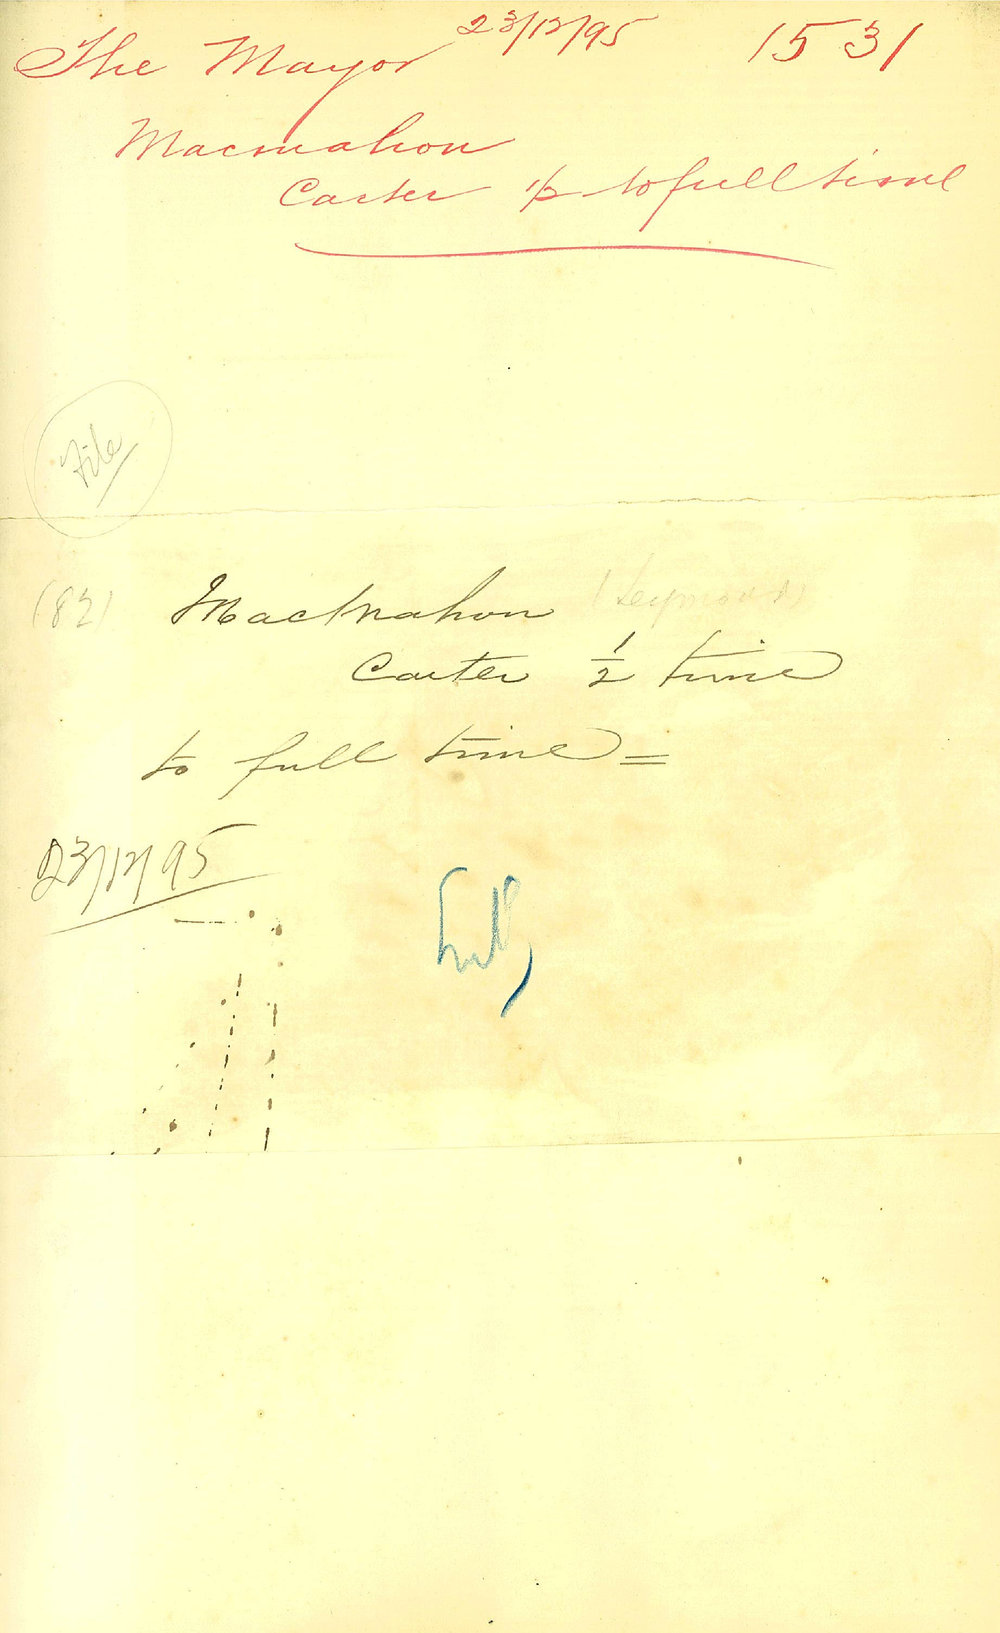 23/12/95 1531
The Mayor
Macmahon
Carter 1/2 to full time
File
(82) MacMahon
Carter 1/2 time
to full time =
23/12/95